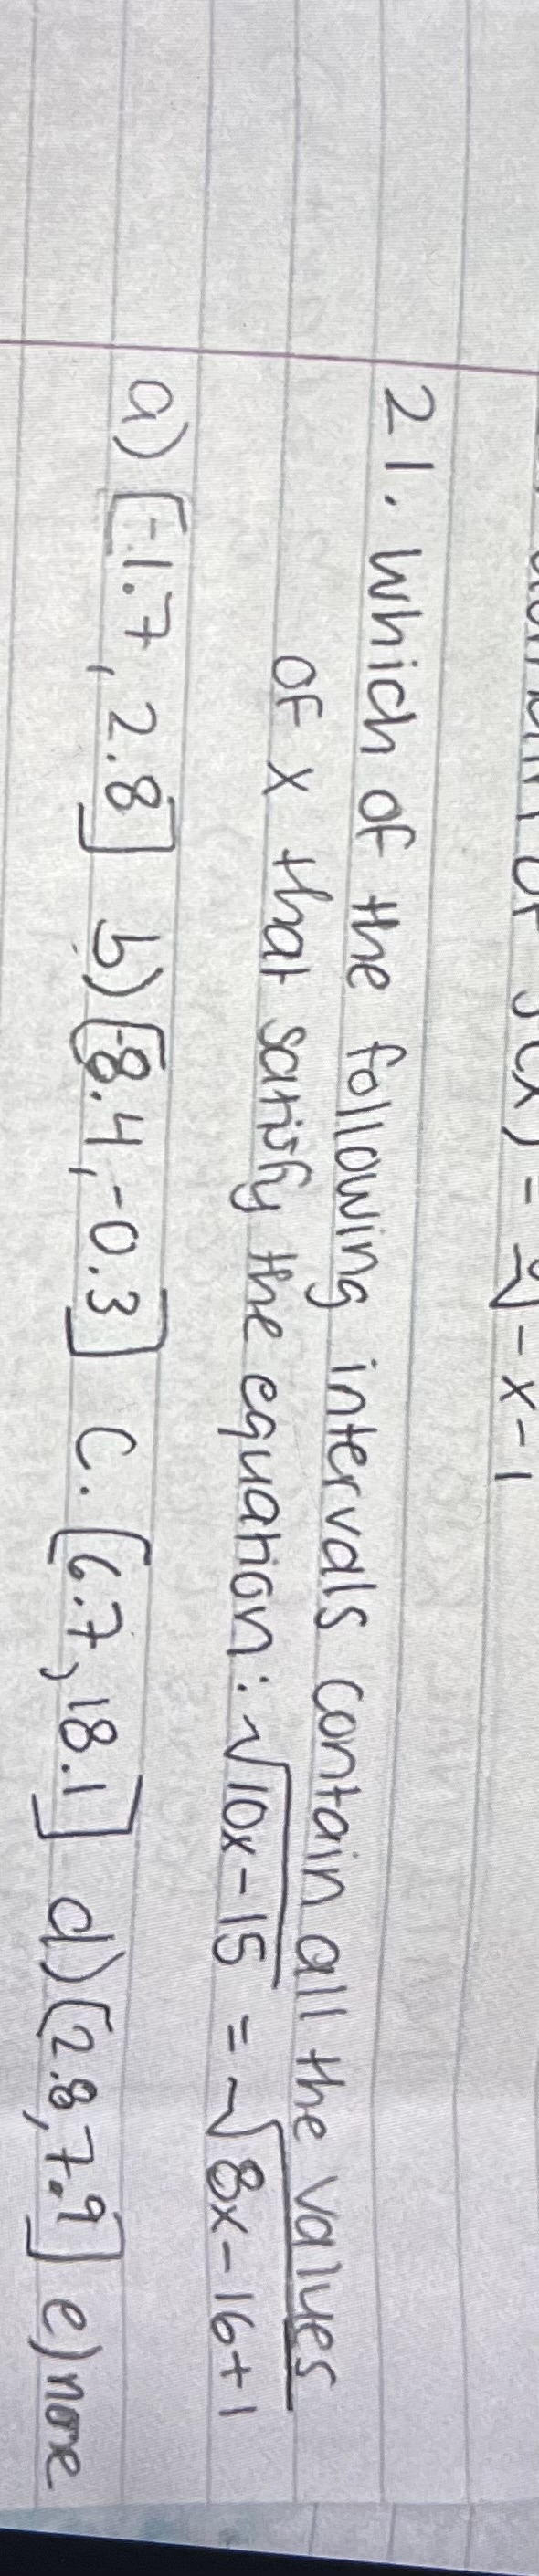 - x - 1
21. Which of the following intervals contain all the values
of x that satisfy the equation: √10x-15 = √8x-16+1
a) [-1.7, 2.8] b) [-8.4, -0.3] c. [6.7, 18.1] d) [2.8, 7.9] e) none